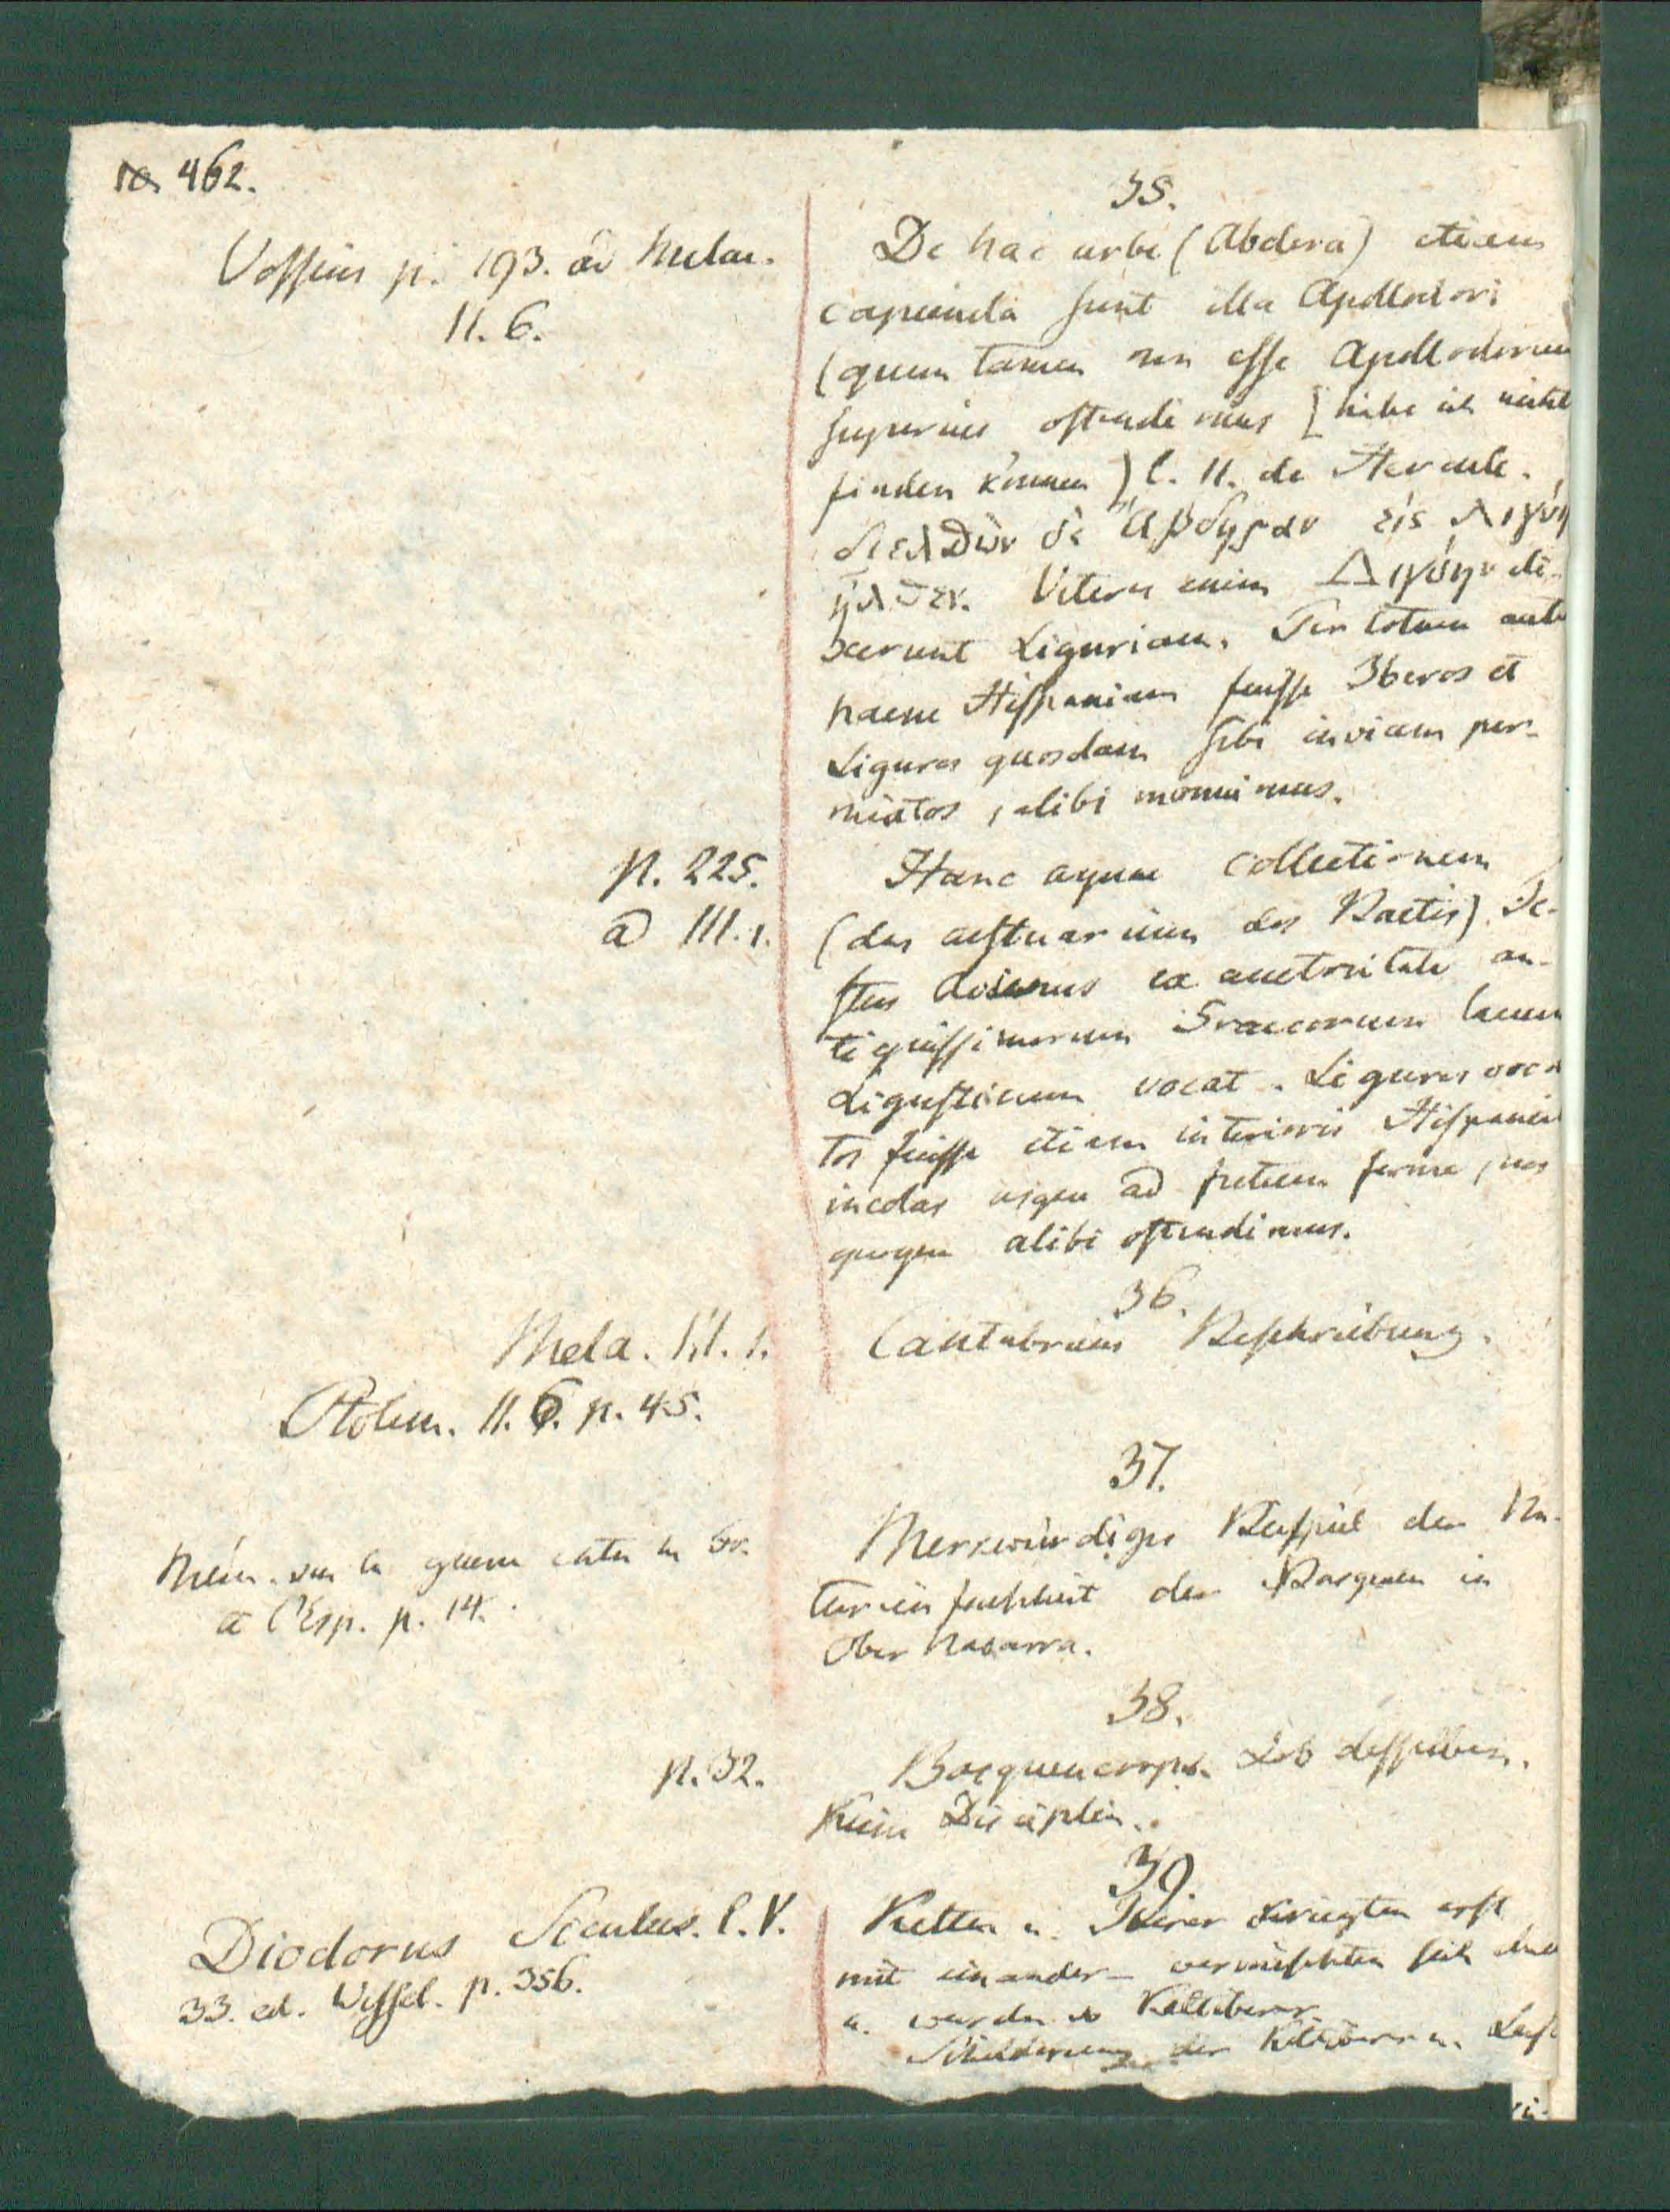 462.
Vossius p. 193. ad Melae.
II. 6.
35.
De hac urbe (Abdera) etiam
capienda sunt illa Apollodori
(quem tamen non esse Apollodorum
superius ostendimus [habe ich nicht
finden können) l. II. de Hercule.
διελθὼν δὲ Ἄβδηραν εἰς Λιγύη
ἦλθεν. Veteres enim Λιγύην di-
xerunt Liguriam. Per totam aute
paene Hispaniam fuisse Iberos et
Ligures quosdam sibi invicem per-
mixtos, alibi monuimus.
p. 225.
ad III. 1.
Hanc aquae collectionem
(das aestuarium des Baetis) Fe-
stus Avienus ex auctoritate an-
tiquissimorum Graecorum lacum
Ligusticum vocat. Ligures voca
tos fuisse etiam interioris Hispaniae
incolas usque ad fretum ferme, nos
quoque alibi ostendimus.
36.
Mela. III. 1.
Cantabriens Beschreibung.
Ptolem. II. 6. p. 45.
37.
Mém. sur la guerre entre la Fr.
et l'Esp. p. 14.
Merkwürdiges Beispiel der Na-
tureinfachheit der Basquen in
Ober Navarra.
38.
p. 32.
Basquencorps. Lob desselben.
Keine Disciplin.
39.
Diodorus Siculus. l. V.
33. ed. Wessel. p. 356.
Kelten u. Iberer kriegten erst
mit einander – vermischten sich dann
u. wurden so Keltiberer.
Schilderung der Keltiberer u. Lusi